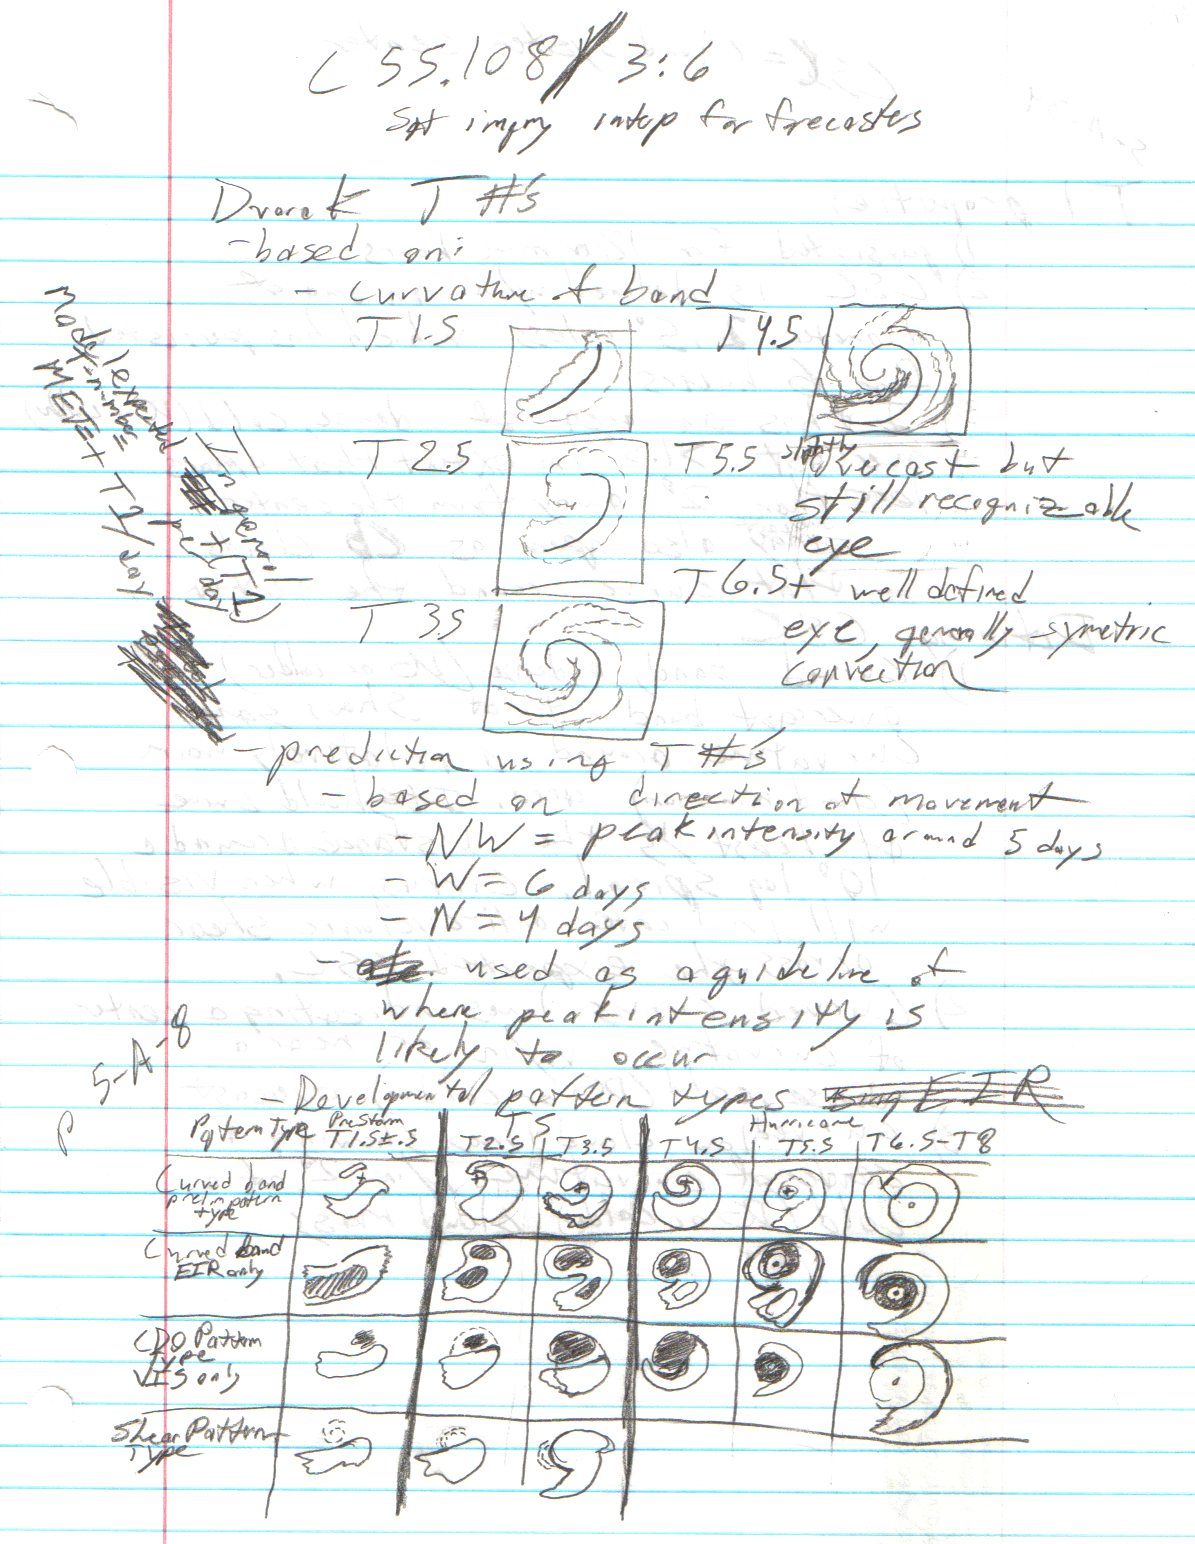 C 55.108/3:6
Sat imgry interp for forecasters
Dvorak T #'s
- based on:
- curvature of band
T 1.5
T 4.5
T 2.5
T 5.5 slightly overcast but
still recognizable
eye
T 6.5+ well defined
eye, generally symetric
convection
T 3.5
- prediction using T #'s
- based on direction of movement
- NW = peak intensity around 5 days
- W = 6 days
- N = 4 days
- used as a guideline of
where peak intensity is
likely to occur
p 5-A-8
- Developmental pattern types
Pattern Type
PreStorm
T1.5±.5
TS
T2.5
T3.5
Hurricane
T4.5
T5.5
T6.5-T8
Curved band
prelim pattern
type
Curved band
EIR only
CDO Pattern
Type
VIS only
Shear Pattern
Type